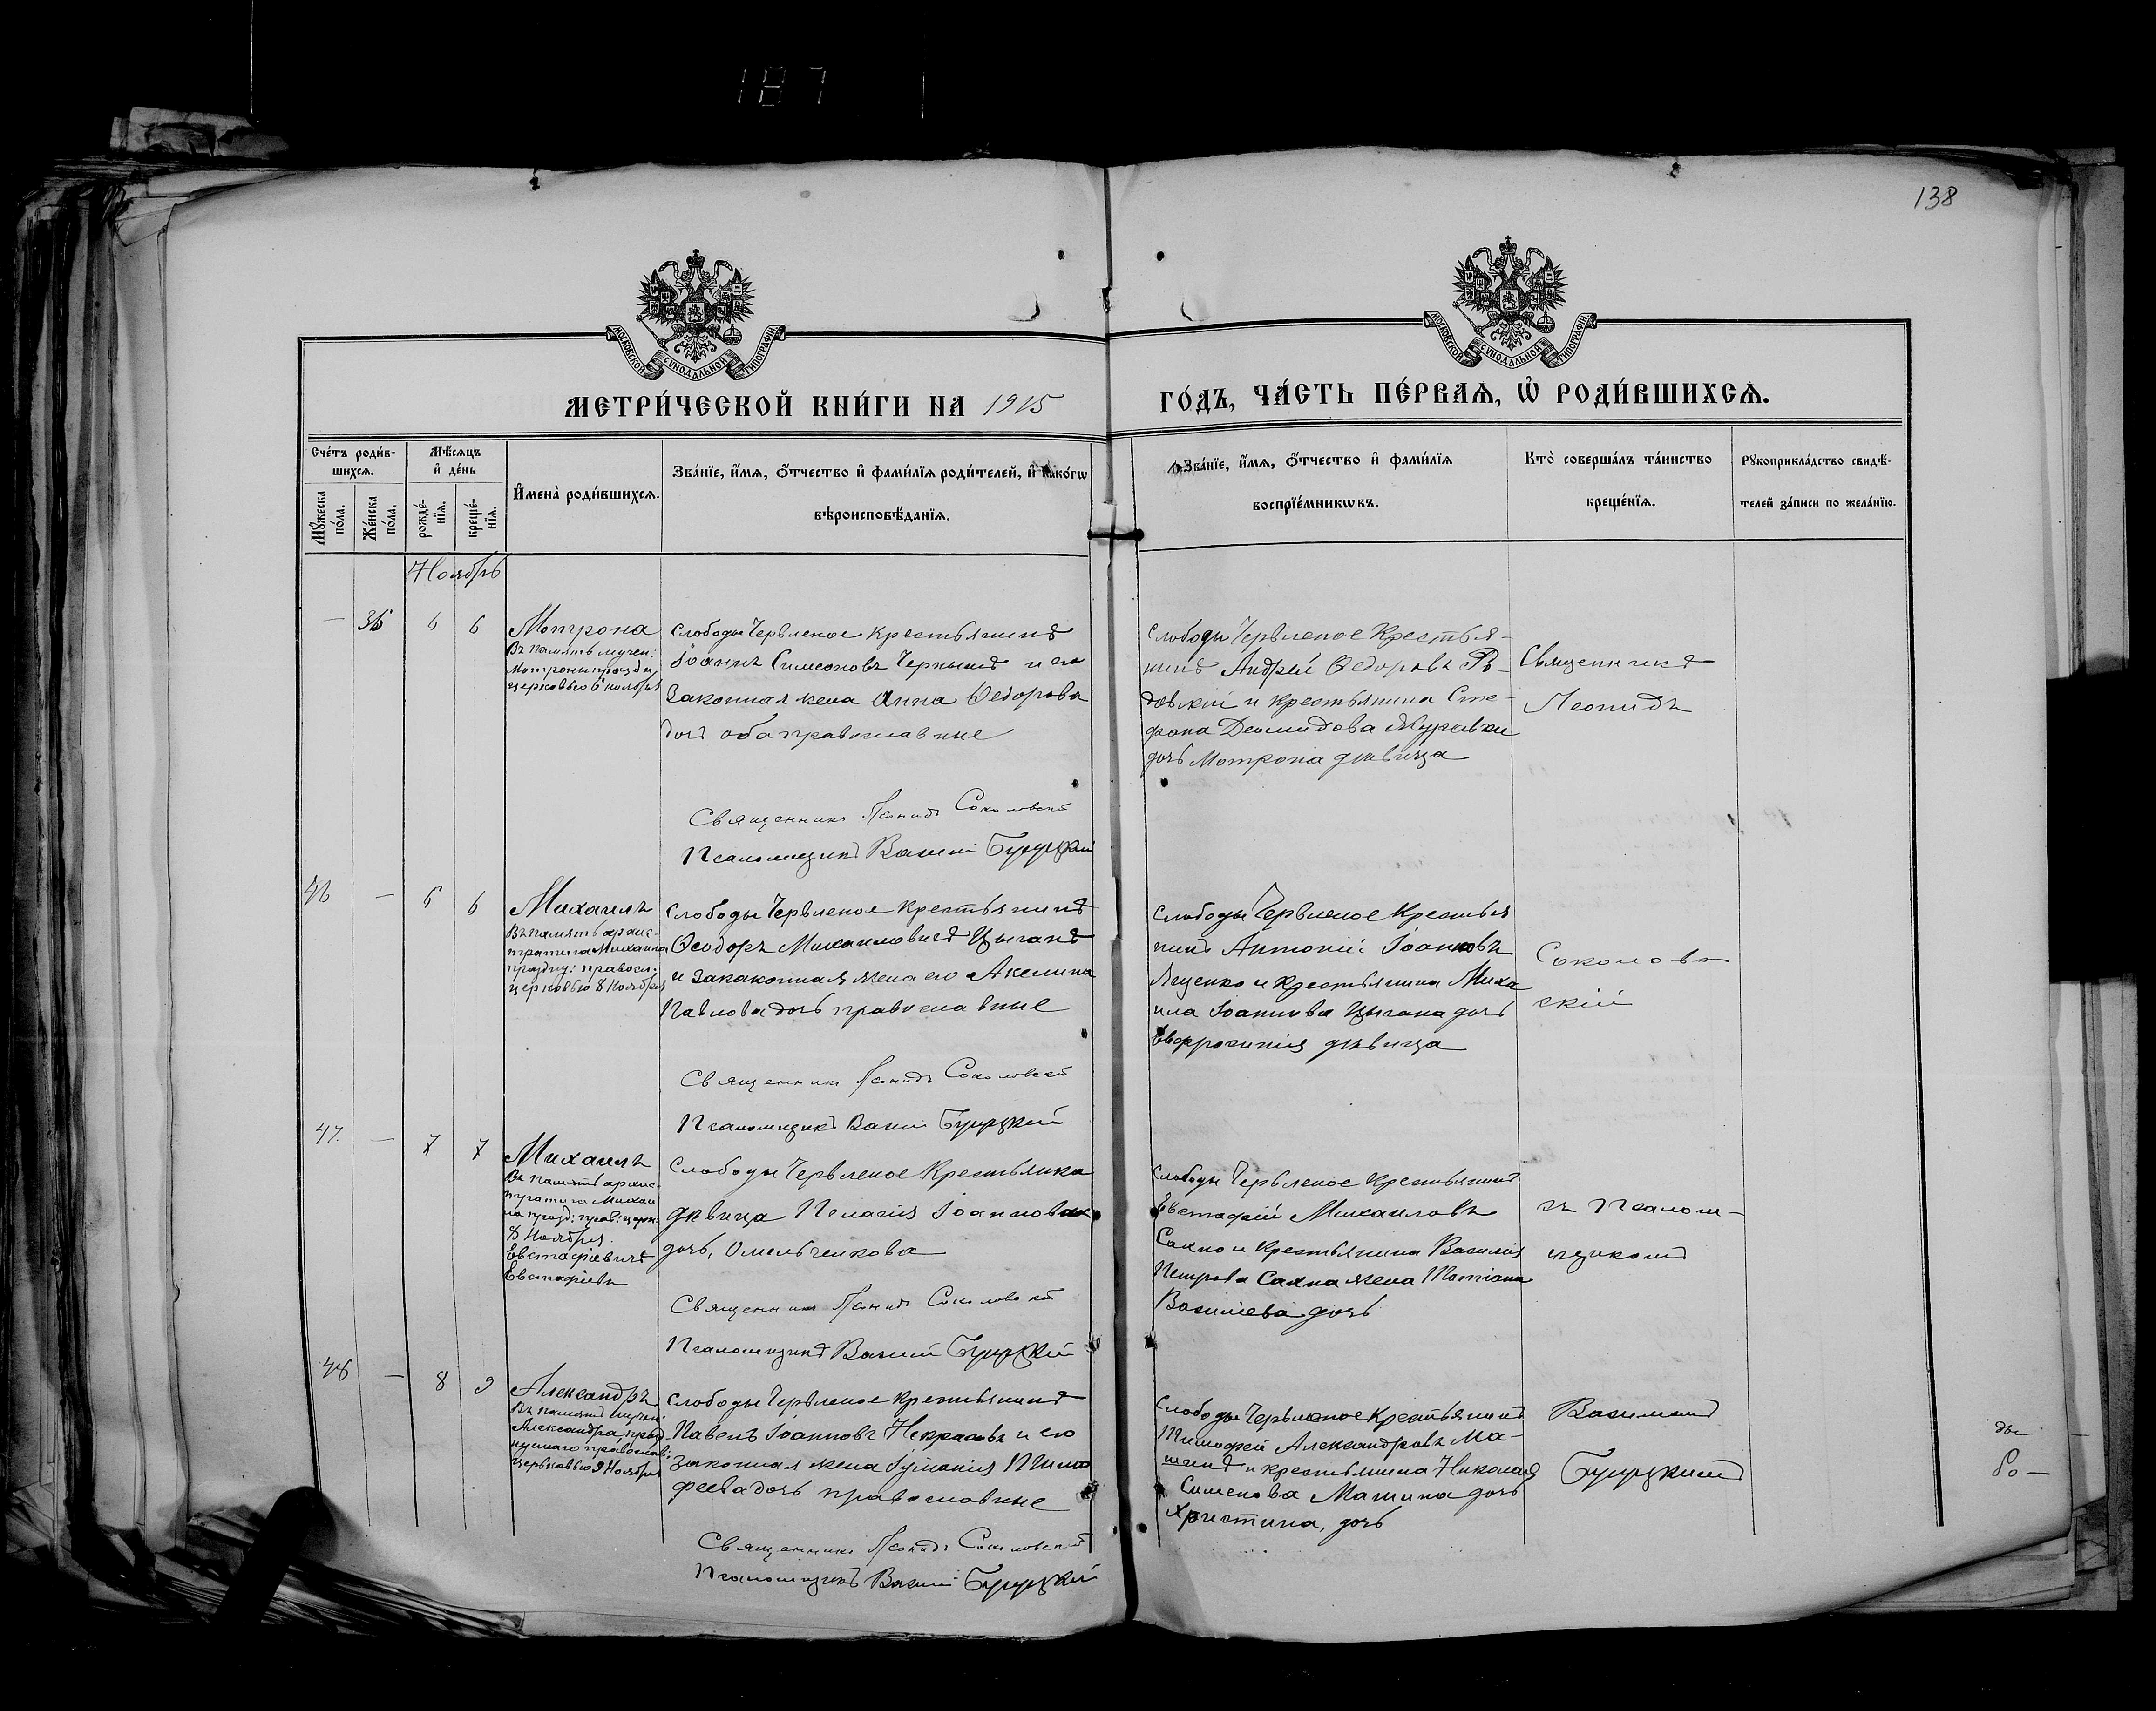 187
138
МОСКОВСКОЙ СѴНОДАЛЬНОЙ ТИПОГРАФІИ
МОСКОВСКОЙ СѴНОДАЛЬНОЙ ТИПОГРАФІИ
МЕТРИ́ЧЕСКОЙ КНИ́ГИ НА 1915 ГО́ДЪ, ЧА́СТЬ ПЕ́РВАѦ, Ѡ҆ РОДИ́ВШИХСѦ.
Сче́тъ роди́в-
шихсѧ.
Мꙋ́жеска по́ла.
Же́нска по́ла.
Мѣ́сѧцъ и҆ де́нь
рожде́-
нїѧ.
креще́-
нїѧ.
И҆мена̀ роди́вшихсѧ.
Зва́нїе, и҆́мѧ, ѻ҆́тчество и҆ фами́лїѧ роди́телей, и҆ како́гѡ
вѣроисповѣ́данїѧ.
Зва́нїе, и҆́мѧ, ѻ҆́тчество и҆ фами́лїѧ
воспрїе́мникѡвъ.
Кто̀ соверша́лъ та́инство
креще́нїѧ.
Рꙋкоприкла́дство свидѣ́-
телей за́писи по жела́нїю.
Ноябрь
— 36 6 6
Мотрона
Въ память мучен.
Мотроны празд н.
церковью 6 ноября
Слободы Червленое крестьянинъ
Іоаннъ Симеоновъ Черный и его
Законная жена Анна Ѳедорова
дочь оба православные
Священникъ Леонидъ Соколовскій
Псаломщикъ Василій Буруцкій
Слободы Червленое Крестья-
нинъ Андрей Ѳедоровъ
и крестьянина Сте-
фана Деомидова
дочь Мотрона дѣвица
Священникъ
Леонидъ
46 — 6 6
Михаилъ
Въ память архис-
тратига Михаила
праздну: правосл.
церковью 8 Ноября
Слободы Червленое крестьянинъ
Ѳеодоръ Михаиловичъ Цыганъ
и закаконная жена его Акелина
Павлова дочь православные
Священникъ Леонидъ Соколовскій
Псаломщикъ Василій Буруцкій
Слободы Червленое Крестья
нинъ Антоній Іоанновъ
Яценко и крестьянина Миха
ила Іоаннова Цыгана дочь
Евфросинія дѣвица
Соколов
скій
47. — 7 7
Михаилъ
Въ память архис-
тратига Михаи
ла празд: прав: церк.
8 Ноября.
Евстафіевичъ
Евстафіевъ
Слободы Червленое Крестьянка
дѣвица Пелагія Іоаннова
дочь, Омельченкова
Священникъ Леонидъ Соколовскій
Псаломщикъ Василій Буруцкій
Слободы Червленое Крестьянинъ
Евстафій Михаиловъ
Сахно и Крестьянина Василія
Петрова Сахна жена Татіана
Васильева дочь
съ Псалом-
щикомъ
48 — 8 9
Александръ
Въ память мучен.
Александра, празд
нуемаго православ:
церковью 9 Ноября
Слободы Червленое крестьянинъ
Павелъ Іоанновъ Некрасовъ и его
законная жена Іуліанія Тимо
феева дочь православные
Священникъ Леонидъ Соколовскій
Псаломщикъ Василій Буруцкій
Слободы Червленое Крестьянинъ
Тимофей Александровъ Ма-
шинъ и крестьянина Николая
Симеонова Машина дочь
Христина, дочь
Василіемъ
Буруцкимъ
ды
бо—